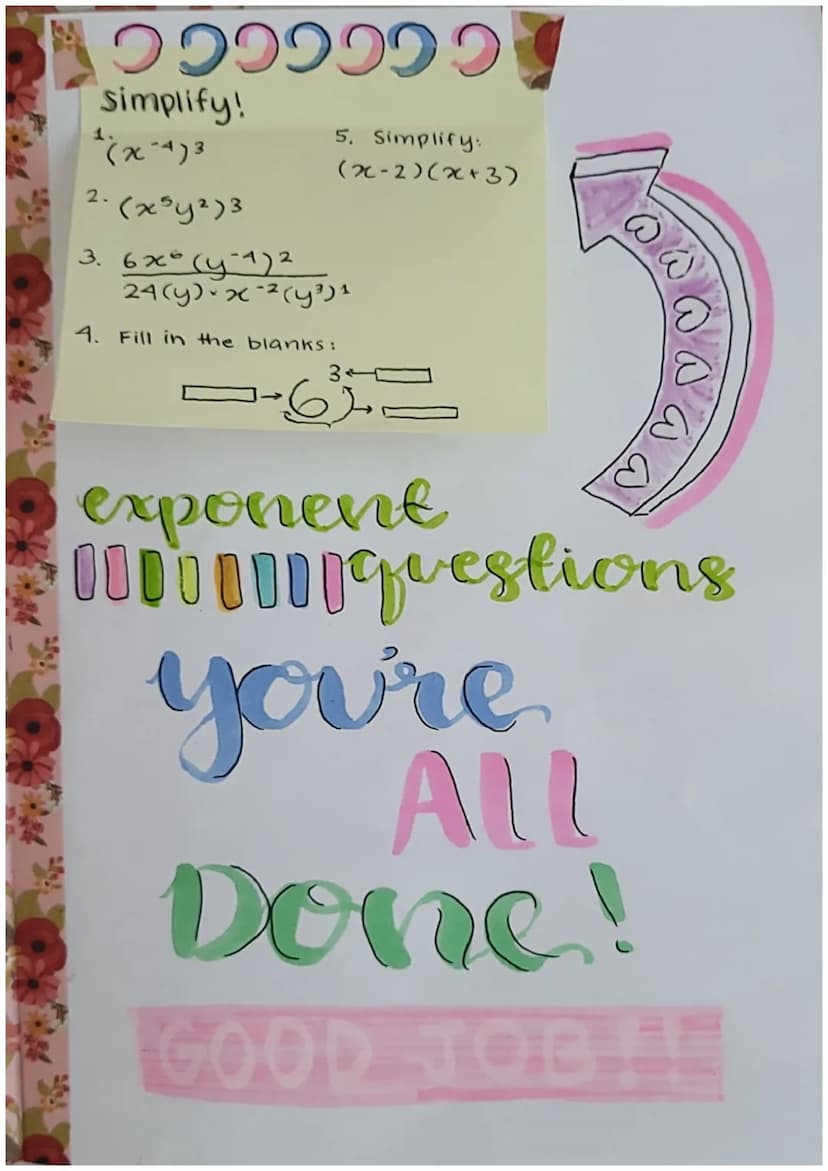 Simplify!
1. (x⁻⁴)³
2. (x⁵y²)³
3. 6x⁶(y⁻⁴)²
24(y)·x⁻²(y³)¹
4. Fill in the blanks:
3
6
5. Simplify:
(x-2)(x+3)
exponent
questions
you're
ALL
Done!
GOOD JOB!!